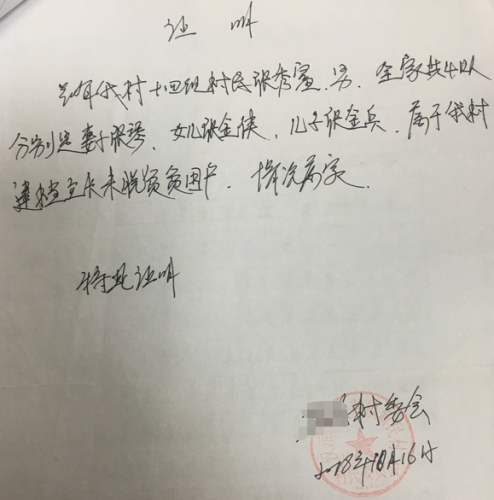 证 明
兹有我村十四组村民张秀富、男、全家共4口人
分别是妻子张琴、女儿张金侠、儿子张金兵、属于我村
建档立卡未脱贫贫困户、情况属实.
特此证明
村委会
2018年10月16日